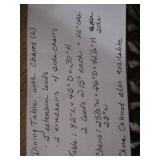 Dining Table with Chairs (6)
2 extension leafs
2 armchairs 4 side chairs
Table: 82"L x 45"D x 30"H
2 leafs @ 15" each = 112" long
Chairs: 25½"W x 26"D x 42½"H
23"W side
China Cabinet also available